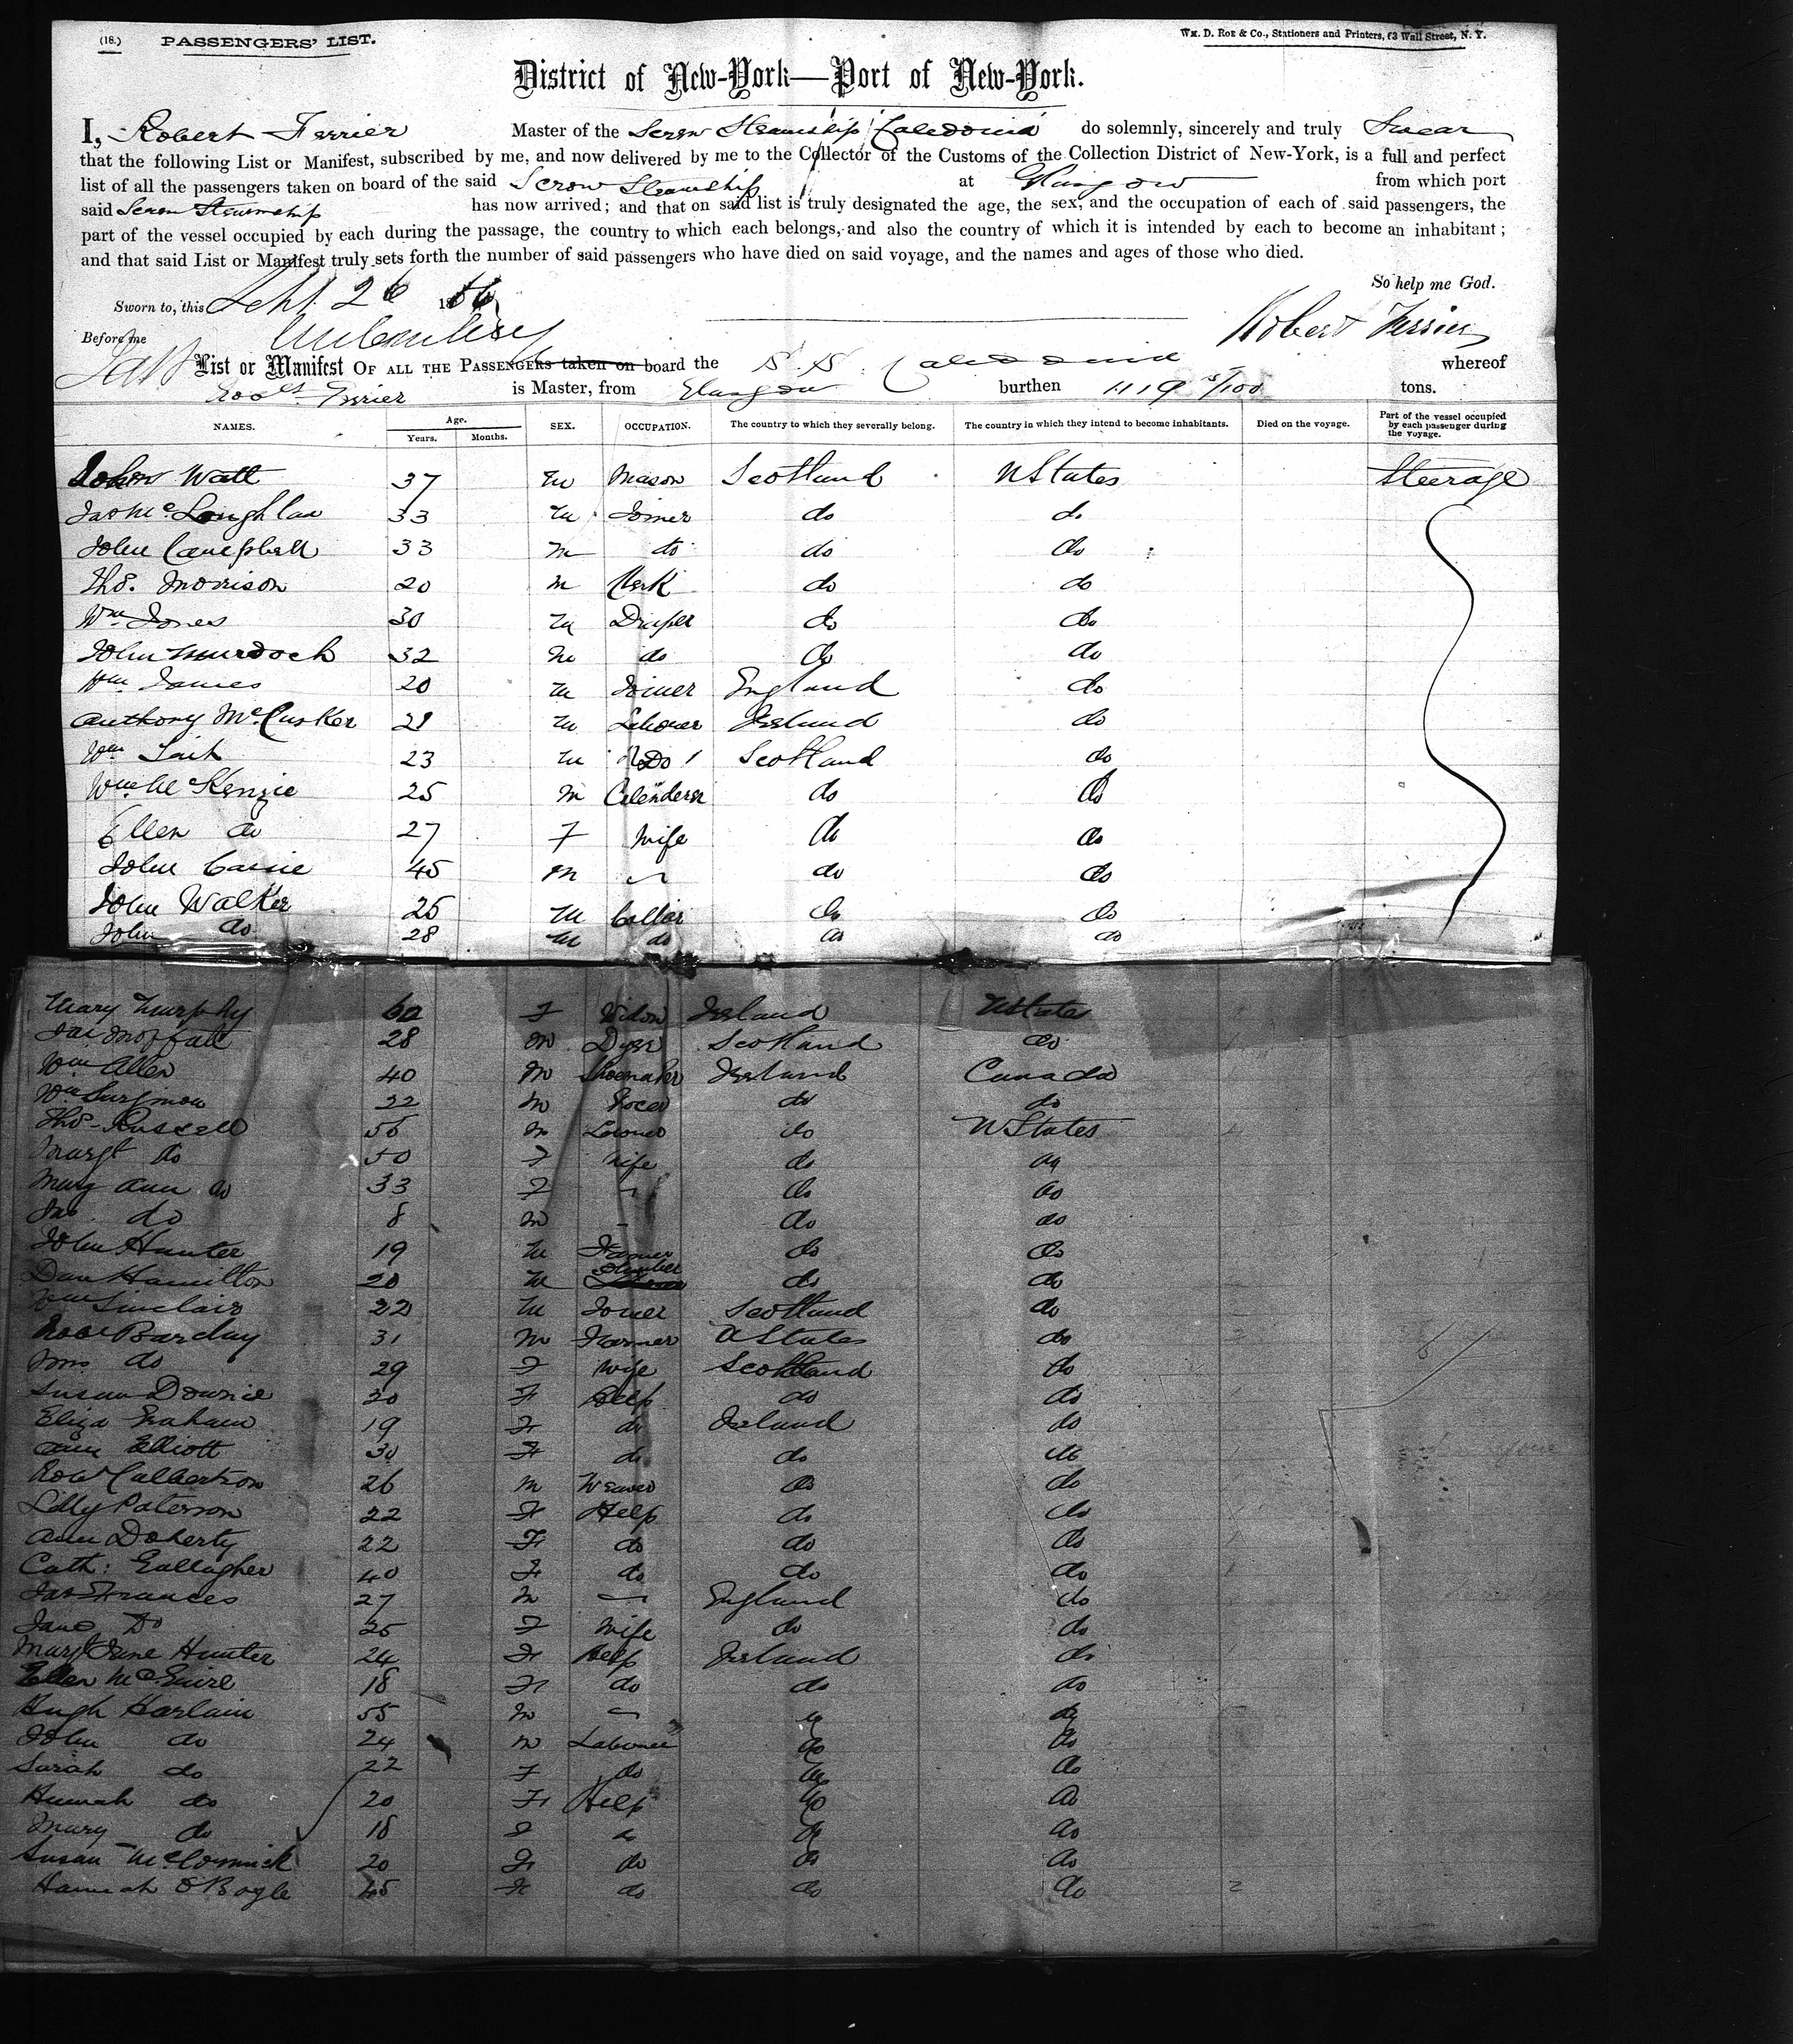 (18.) PASSENGERS' LIST. Wm. D. Roe & Co., Stationers and Printers, 63 Wall Street, N. Y.
District of New-York—Port of New-York.
I, Robert Ferrier Master of the Screw Steamship Caledonia do solemnly, sincerely and truly Swear
that the following List or Manifest, subscribed by me, and now delivered by me to the Collector of the Customs of the Collection District of New-York, is a full and perfect
list of all the passengers taken on board of the said Screw Steamship at Glasgow from which port
said Screw Steamship has now arrived; and that on said list is truly designated the age, the sex, and the occupation of each of said passengers, the
part of the vessel occupied by each during the passage, the country to which each belongs, and also the country of which it is intended by each to become an inhabitant;
and that said List or Manifest truly sets forth the number of said passengers who have died on said voyage, and the names and ages of those who died.
So help me God.
Sworn to, this Sept. 26 1866
Before me Robert Ferrier
List or Manifest OF ALL THE PASSENGERS taken on board the S. S. Caledonia whereof
Robt Ferrier is Master, from Glasgow burthen 1119 5/100 tons.
NAMES. Age. Years. Months. SEX. OCCUPATION. The country to which they severally belong. The country in which they intend to become inhabitants. Died on the voyage. Part of the vessel occupied by each passenger during the voyage.
John Watt 37 M Mason Scotland U States Steerage
Jas Mc Loughlan 33 M Joiner do do
John Campbell 33 M do do do
Thos. Morrison 20 M Clerk do do
Wm Jones 30 M Draper do do
John Murdoch 32 M do do do
Wm James 20 M Joiner England do
Anthony McCusker 21 M Labourer Ireland do
Wm Tait 23 M Do Scotland do
Wm Mc Kenzie 25 M Calenderer do do
Ellen do 27 F Wife do do
John Cassie 45 M " do do
John Walker 25 M Collier do do
John do 28 M do do do
Mary Murphy 60 F Widow Ireland U States
Jas Moffatt 28 M Dyer Scotland do
Wm Allen 40 M Shoemaker Ireland Canada
Wm 22 M Grocer do do
Thos Russell 56 M Laborer do U States
Margt do 50 F Wife do do
Mary Ann do 33 F " do do
Jas. do 8 M - do do
John Hunter 19 M Farmer do do
Dan Hamilton 20 M Plumber do do
Wm Sinclair 22 M Joiner Scotland do
Robt Barclay 31 M Farmer U States do
Mrs do 29 F Wife Scotland do
Susan Downie 30 F Help do do
Eliza Graham 19 F do Ireland do
Ann Elliott 30 F do do do
Robt Culbertson 26 M Weaver do do
Lilly Paterson 22 F Help do do
Ann Doherty 22 F do do do
Cath: Gallagher 40 F do do do
Jas Frances 27 M " England do
Jane Do 25 F Wife do do
Margt Jane Hunter 24 F Help Ireland do
Ellen McGuire 18 F do do do
Hugh Harlain 55 M " do do
John do 24 M Labourer do do
Sarah do 22 F do do do
Hannah do 20 F Help do do
Mary do 18 F do do do
Susan McCormick 20 F do do do
Hannah O'Bogle 45 F do do do 2